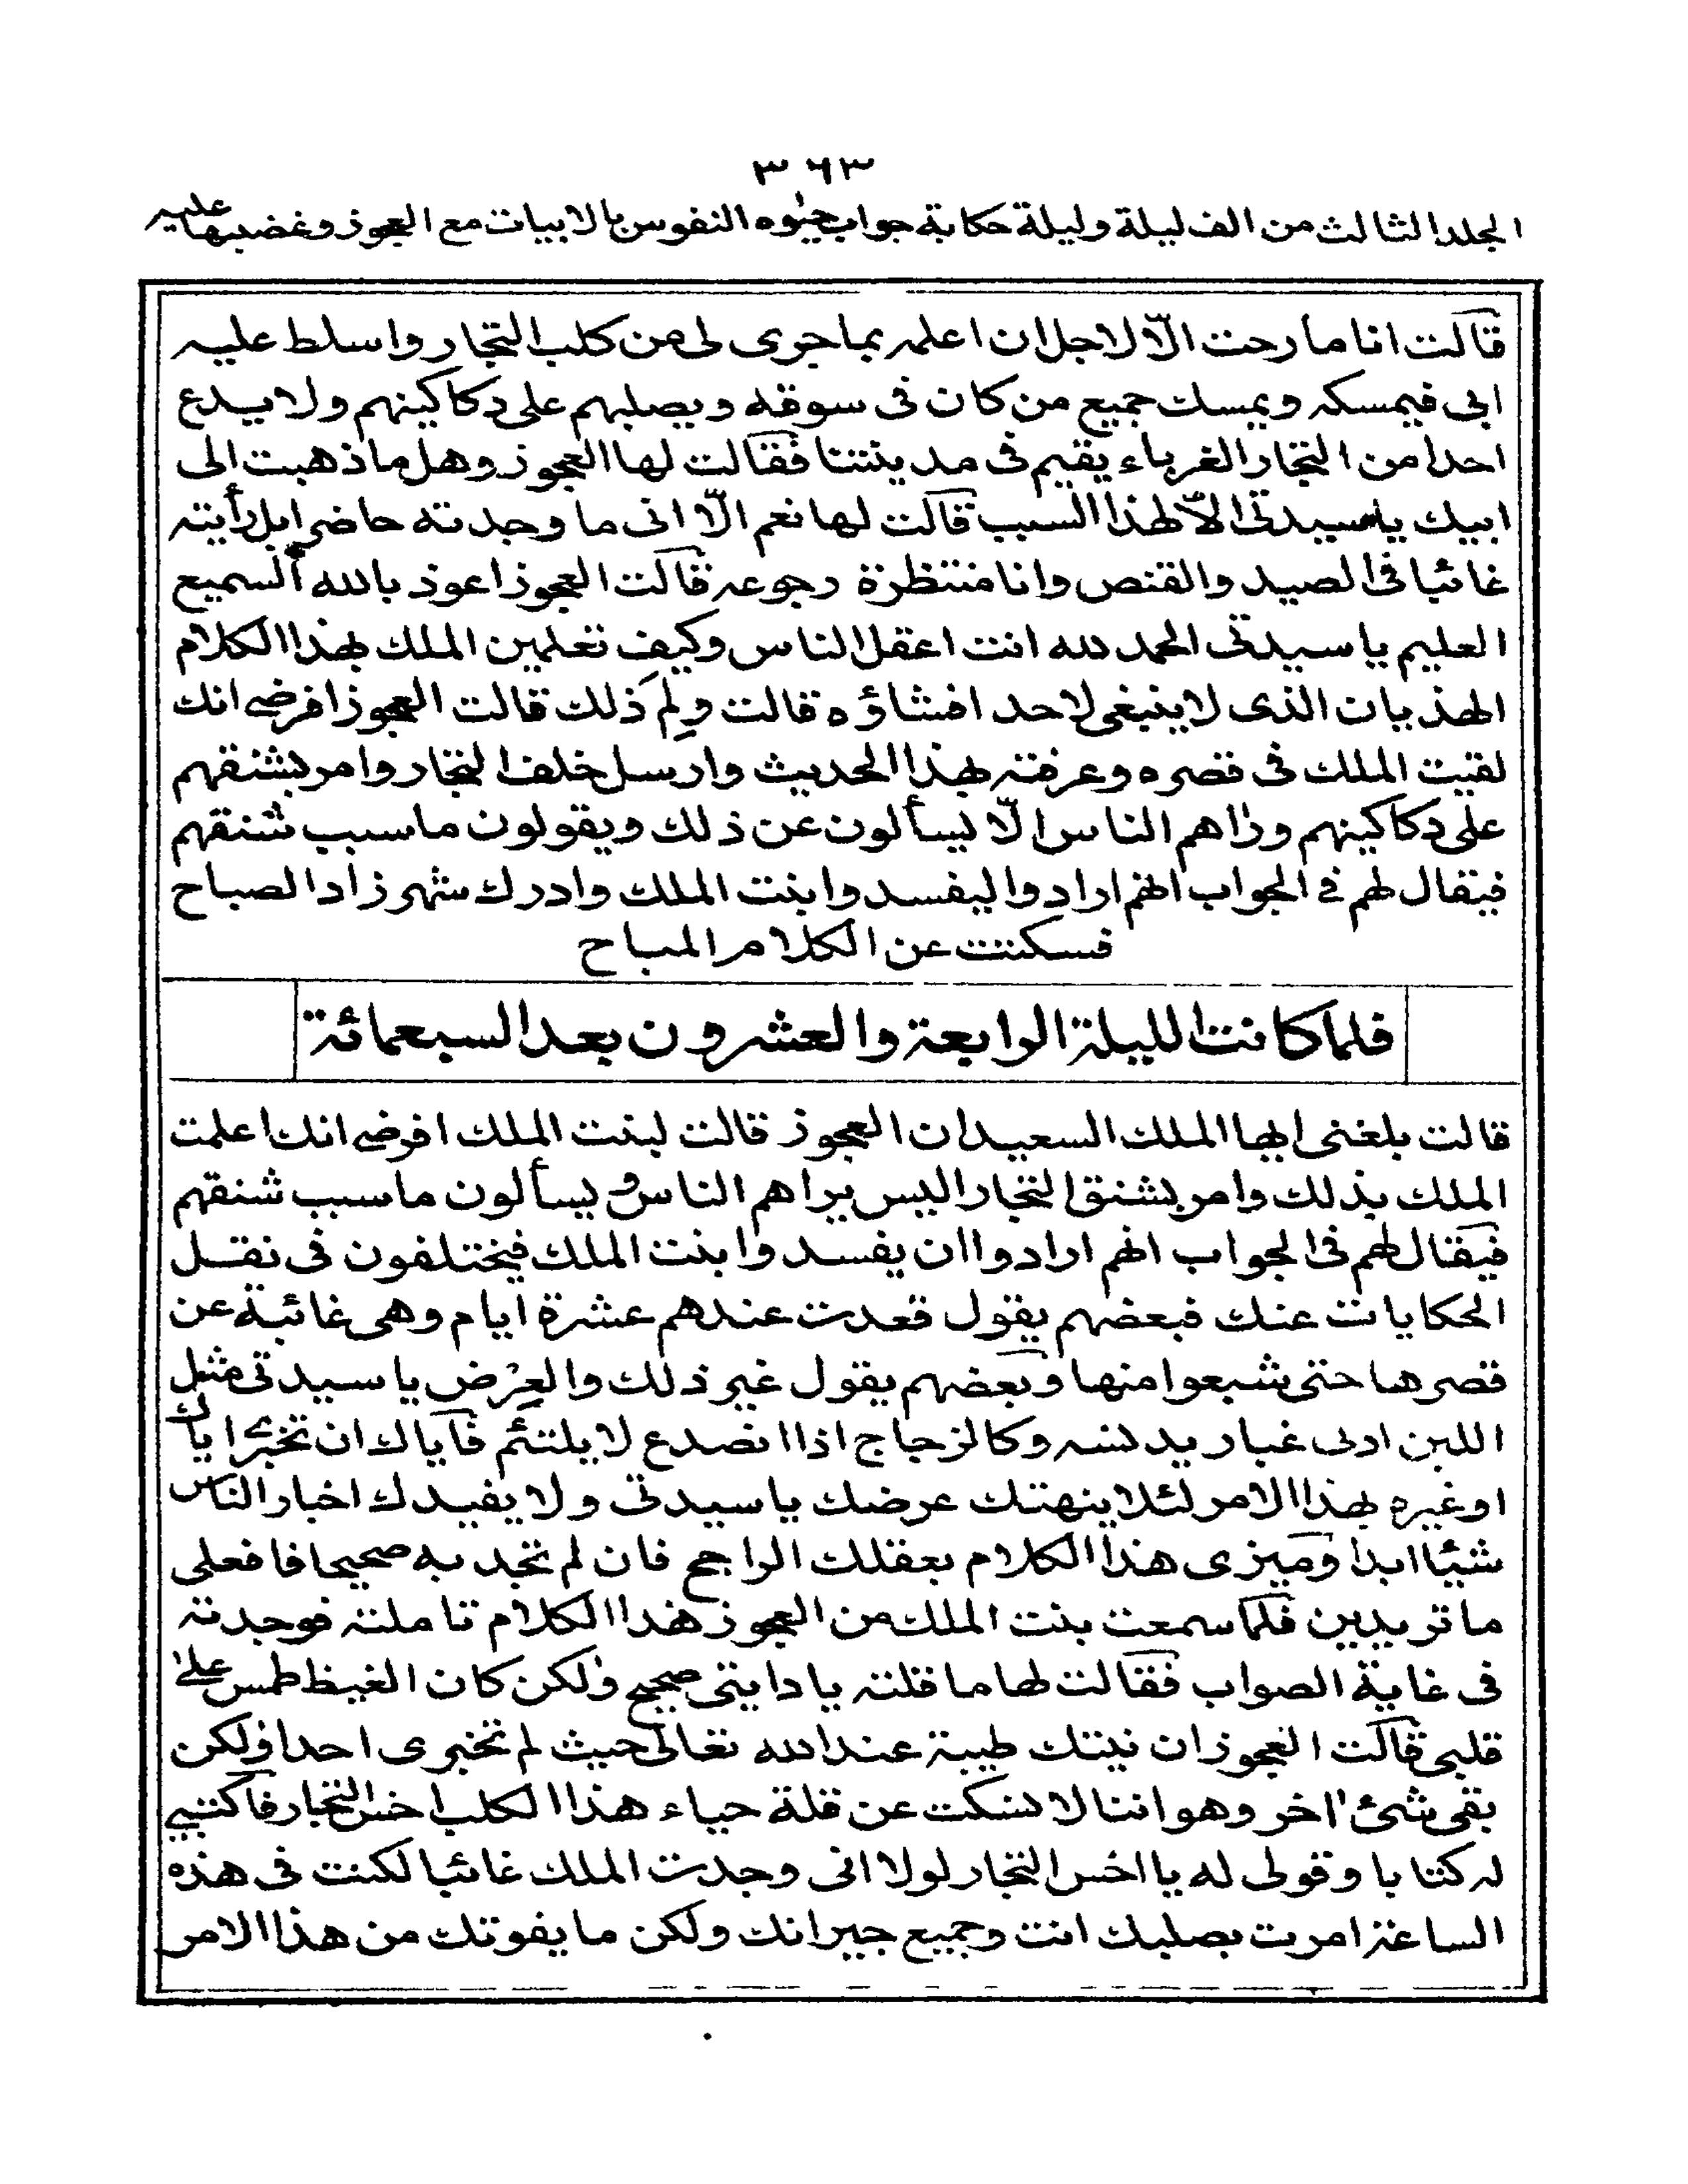 ٣٦٣
المجلد الثالث من الف ليلة وليلة حكاية جواب حيٰوة النفوس بالابيات مع العجوز وغضبها عليه
قالت انا ما رحت الّا لاجل ان اعلمه بما جرى لى من كلب التجار واسلط عليه
ابى فيمسكه ويمسك جميع من كان فى سوقه ويصلبهم على دكاكينهم ولا يدع
احدا من التجار الغرباء يقيم فى مدينتنا فقالت لها العجوز وهل ما ذهبت الى
ابيك يا سيدتى الّا لهذا السبب قالت لها نعم الّا انى ما وجدته حاضرا بل رأيته
غائبا فى الصيد والقنص وانا منتظرة رجوعه قالت العجوز اعوذ بالله السميع
العليم يا سيدتى الحمد لله انت اعقل الناس وكيف تعلمين الملك بهذا الكلام
الهذيان الذى لا ينبغى لاحد افشاؤه قالت ولِمَ ذلك قالت العجوز افرضى انك
لقيت الملك فى قصره وعرفته بهذا الحديث وارسل خلف التجار وامر بشنقهم
على دكاكينهم ورٰاهم الناس الّا يسألون عن ذلك ويقولون ما سبب شنقهم
فيقال لهم فى الجواب انهم ارادوا ليفسدوا بنت الملك وادرك شهرزاد الصباح
فسكتت عن الكلام المباح
فلما كانت الليلة الرابعة والعشرون بعد السبعمائة
قالت بلغنى ايها الملك السعيد ان العجوز قالت لبنت الملك افرضى انك اعلمت
الملك بذلك وامر بشنق التجار اليس يراهم الناس ويسألون ما سبب شنقهم
فيقال لهم فى الجواب انهم ارادوا ان يفسدوا بنت الملك فيختلفون فى نقل
الحكايات عنك فبعضهم يقول قعدت عندهم عشرة ايام وهى غائبة عن
قصرها حتى شبعوا منها وبعضهم يقول غير ذلك والعِرْض يا سيدتى مثل
اللبن ادنى غبار يدنسه وكالزجاج اذا انصدع لا يلتئم فاياك ان تخبرى اباك
او غيره بهذا الامر لئلا ينهتك عرضك يا سيدتى ولا يفيدك اخبار الناس
شيئا ابدا وميزى هذا الكلام بعقلك الراجح فان لم تجديه صحيحا فافعلى
ما تريدين فلما سمعت بنت الملك من العجوز هذا الكلام تاملته فوجدته
فى غاية الصواب فقالت لها ما قلته يا دايتى صحيح ولٰكن كان الغيظ طمس علىٰ
قلبى قالت العجوز ان نيتك طيبة عند الله تعالى حيث لم تخبرى احدا ولكن
بقى شئ اٰخر وهو اننا لا نسكت عن قلة حياء هذا الكلب اخس التجار فاكتبى
له كتابا وقولى له يا اخس التجار لولا انى وجدت الملك غائبا لكنت فى هذه
الساعة امرت بصلبك انت وجميع جيرانك ولكن ما يفوتك من هذا الامر